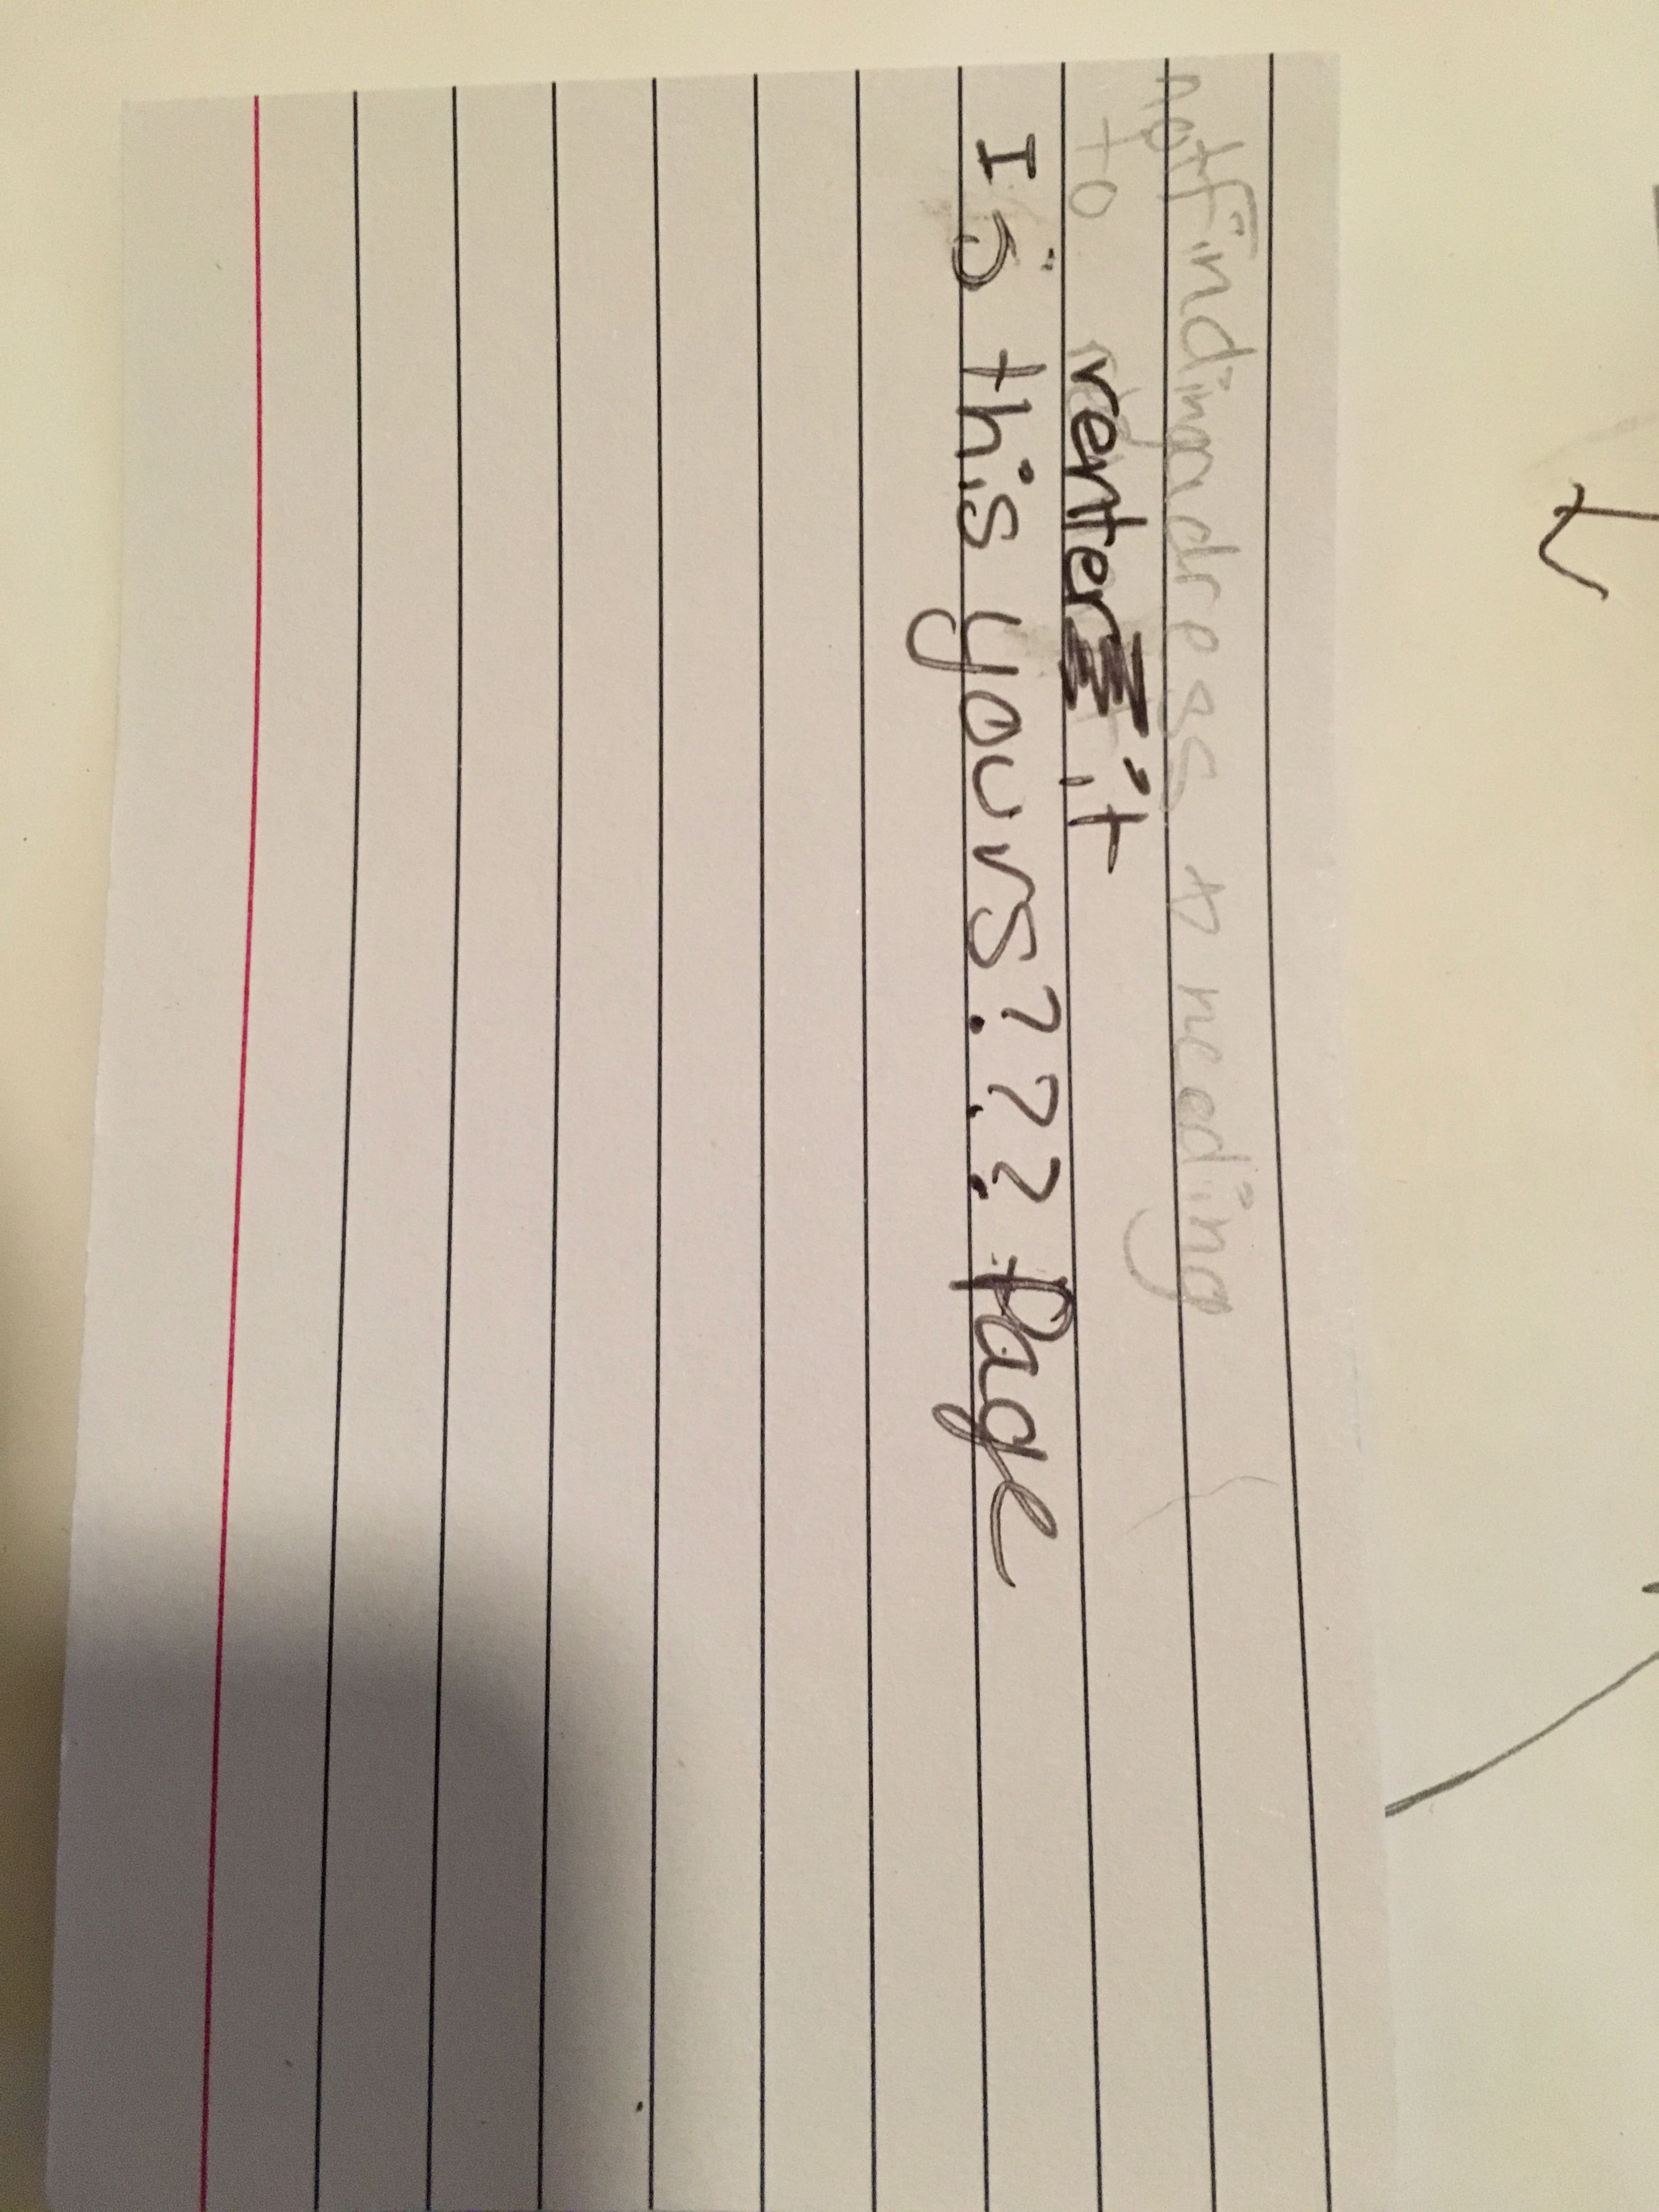 not finding adress & needing
to renter it
Is this yours??? Page